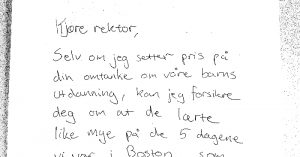 Kjære rektor,
Selv om jeg setter pris på
din omtanke om våre barns
utdanning, kan jeg forsikre
deg om at de lærte
like mye på de 5 dagene
vi var i Boston som